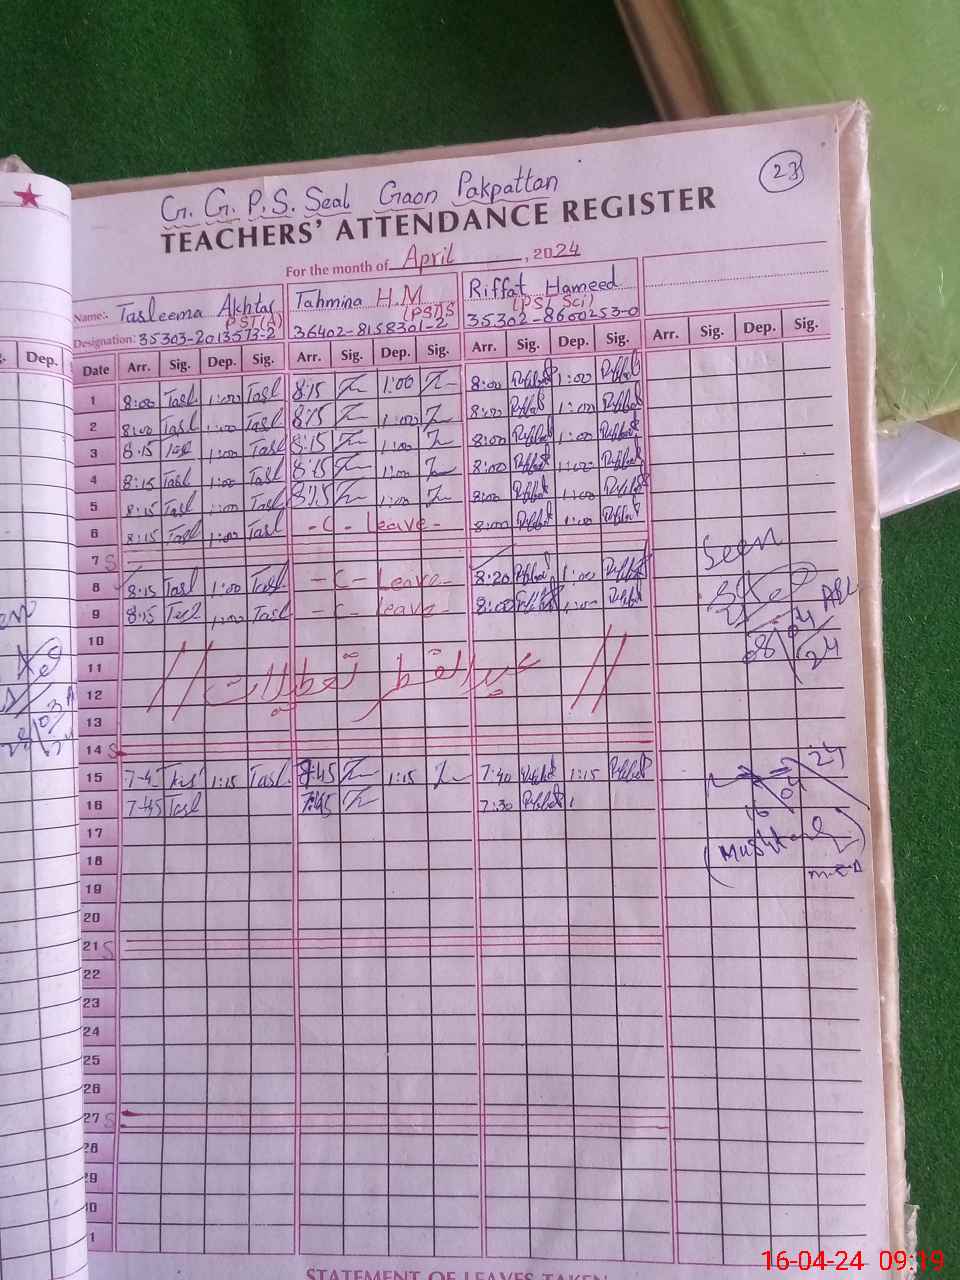 G. G. P. S. Seal Gaon Pakpattan
23
TEACHERS' ATTENDANCE REGISTER
For the month of April, 2024
Name:- Tasleema Akhtar Tahmina H.M Riffat Hameed
(PST) (PST Sci)
Designation: 35303-2013573-2 36402-8158301-2 35302-8600253-0
Dep. Date Arr. Sig. Dep. Sig. Arr. Sig. Dep. Sig. Arr. Sig. Dep. Sig. Arr. Sig. Dep. Sig.
1 8:00 Tasl 1:00 Tasl 8:15 1:00 8:00 Riffat 1:00 Riffat
2 8:00 Tasl 1:00 Tasl 8:15 1:00 8:00 Riffat 1:00 Riffat
3 8:15 Tasl 1:00 Tasl 8:15 1:00 8:00 Riffat 1:00 Riffat
4 8:15 Tasl 1:00 Tasl 8:15 1:00 8:00 Riffat 1:00 Riffat
5 8:15 Tasl 1:00 Tasl 8:15 1:00 8:00 Riffat 1:00 Riffat
6 8:15 Tasl 1:00 Tasl - C - Leave - 8:00 Riffat 1:00 Riffat
7 S
Seen
8 8:15 Tasl 1:00 Tasl - C - Leave - 8:20 Riffat 1:00 Riffat
9 8:15 Tasl 1:00 Tasl - C - Leave - 8:00 Riffat 1:00 Riffat
08/04/24
10
11
عید الفطر تعطیلات
12
13
14 S
15 7-45 Tasl 1:15 Tasl 7:45 1:15 7:40 Riffat 1:15 Riffat
16 7-45 Tasl 7:45 7:30 Riffat
16/04/24
17
(Mushtaq)
18
19
20
21 S
22
23
24
25
26
27 S
28
29
30
1
STATEMENT OF LEAVES TAKEN
16-04-24 09:19